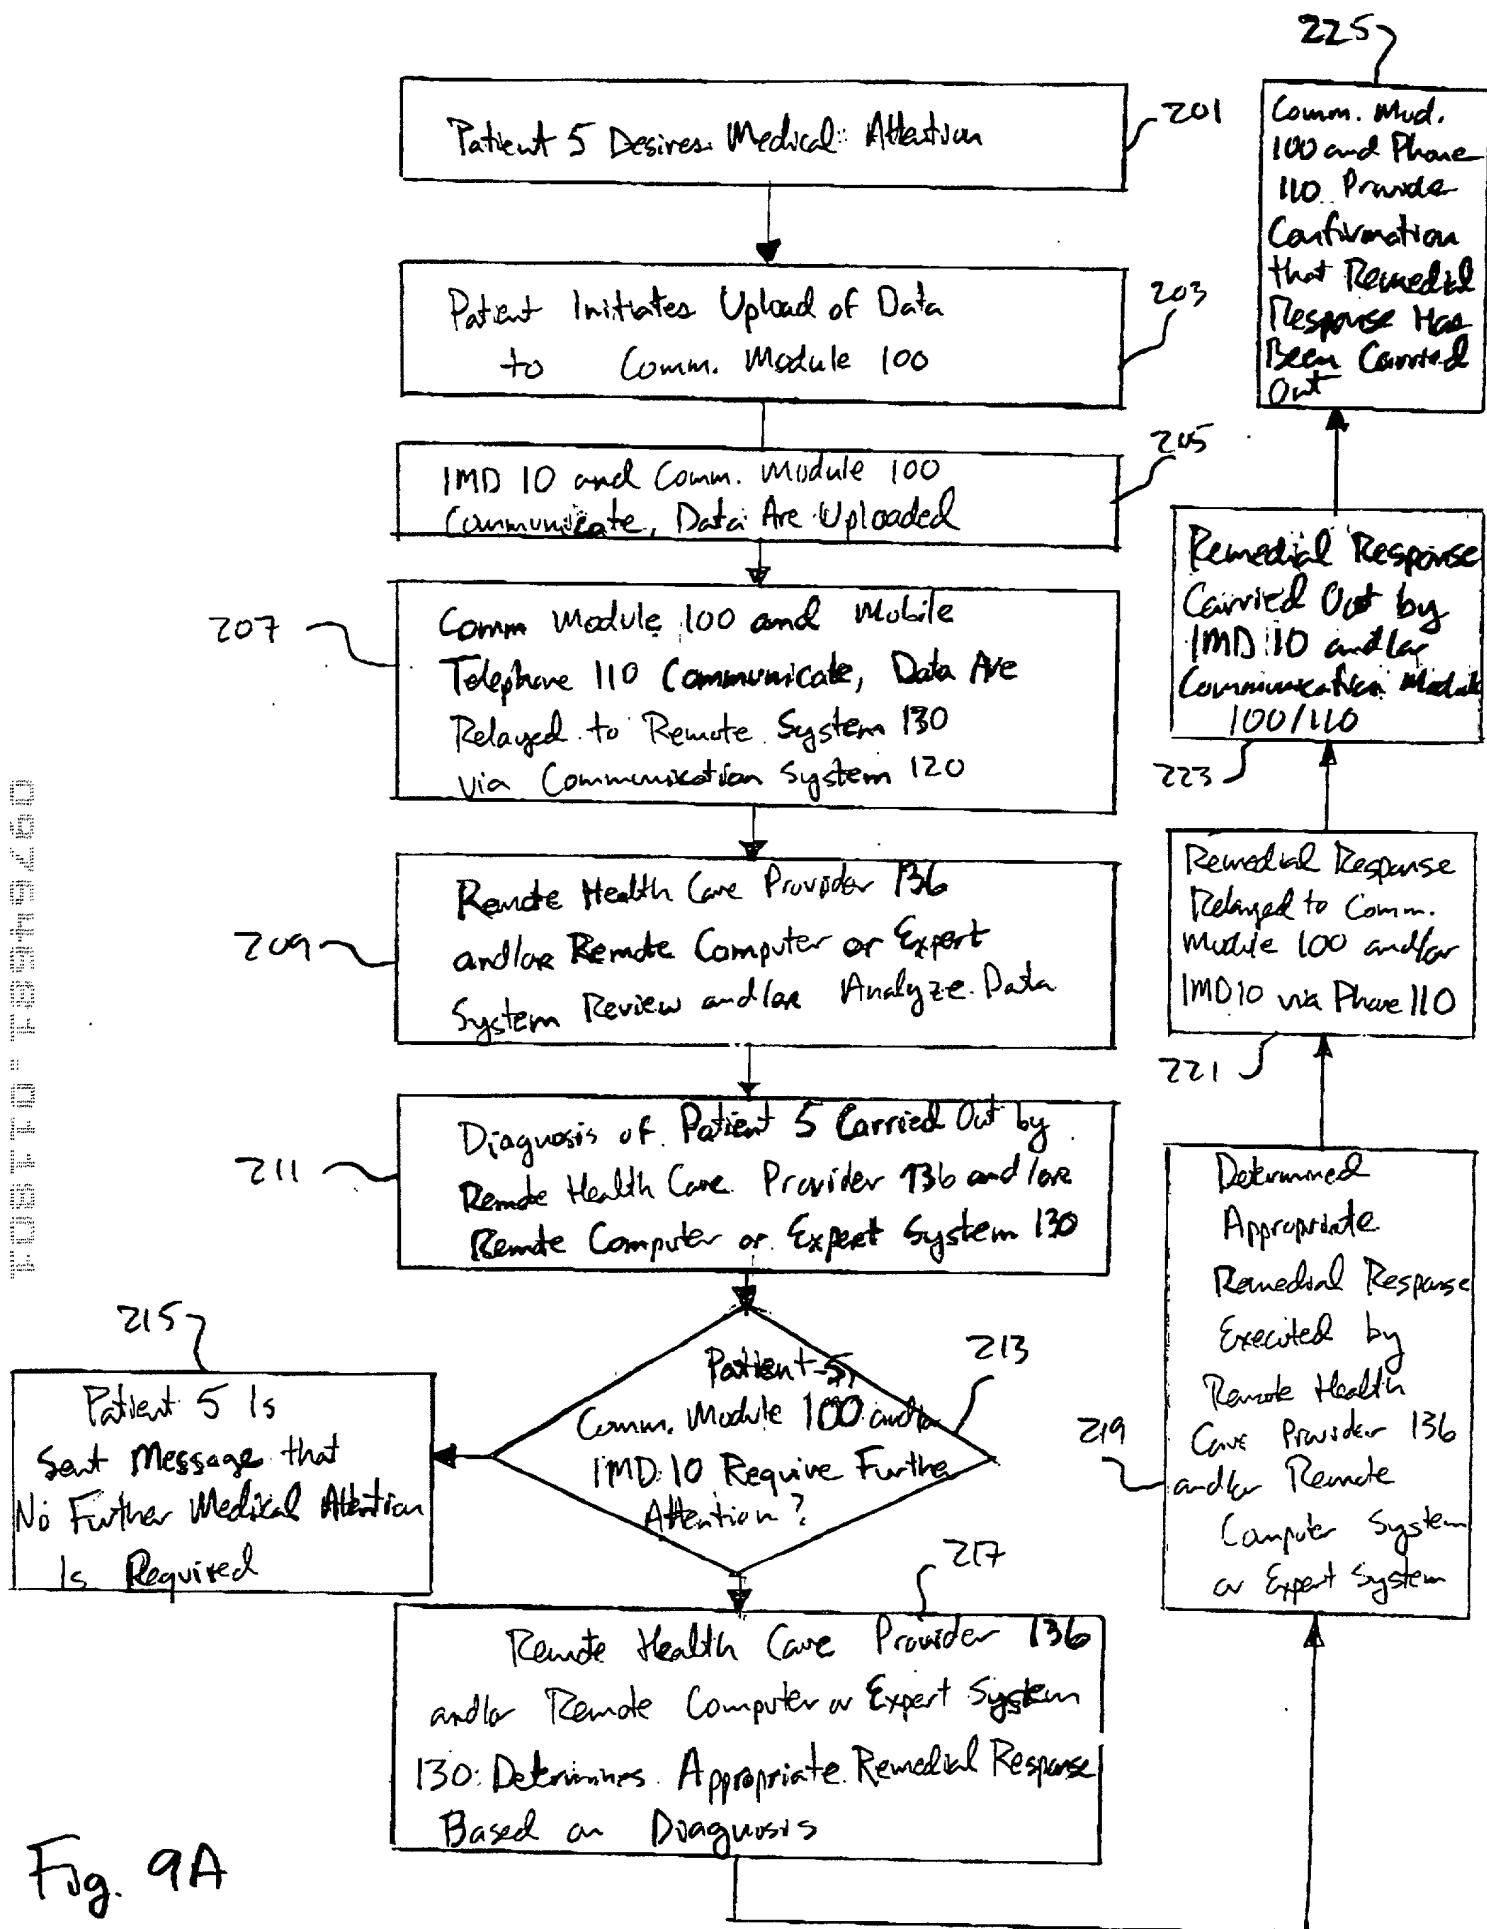 201
Patient 5 Desires Medical Attention
203
Patient Initiates Upload of Data
to Comm. Module 100
205
IMD 10 and Comm. Module 100
Communicate, Data Are Uploaded
207
Comm Module 100 and Mobile
Telephone 110 Communicate, Data Are
Relayed to Remote System 130
via Communication System 120
209
Remote Health Care Provider 136
and/or Remote Computer or Expert
System Review and/or Analyze Data
211
Diagnosis of Patient 5 Carried Out by
Remote Health Care Provider 136 and/or
Remote Computer or Expert System 130
213
Patient 5,
Comm. Module 100 and/or
IMD 10 Require Further
Attention?
215
Patient 5 Is
Sent Message that
No Further Medical Attention
Is Required
217
Remote Health Care Provider 136
and/or Remote Computer or Expert System
130 Determines Appropriate Remedial Response
Based on Diagnosis
219
Determined
Appropriate
Remedial Response
Executed by
Remote Health
Care Provider 136
and/or Remote
Computer System
or Expert System
221
Remedial Response
Relayed to Comm.
Module 100 and/or
IMD 10 via Phone 110
223
Remedial Response
Carried Out by
IMD 10 and/or
Communication Module
100/110
225
Comm. Mod.
100 and Phone
110 Provide
Confirmation
that Remedial
Response Has
Been Carried
Out
Fig. 9A